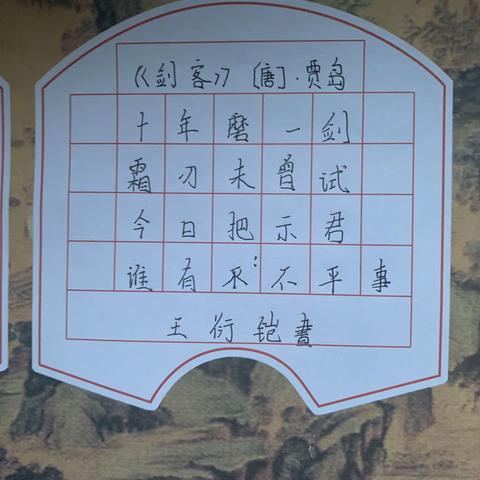 《剑客》〔唐〕·贾岛
十年磨一剑
霜刃未曾试
今日把示君
谁有不:不平事
王衍铠书